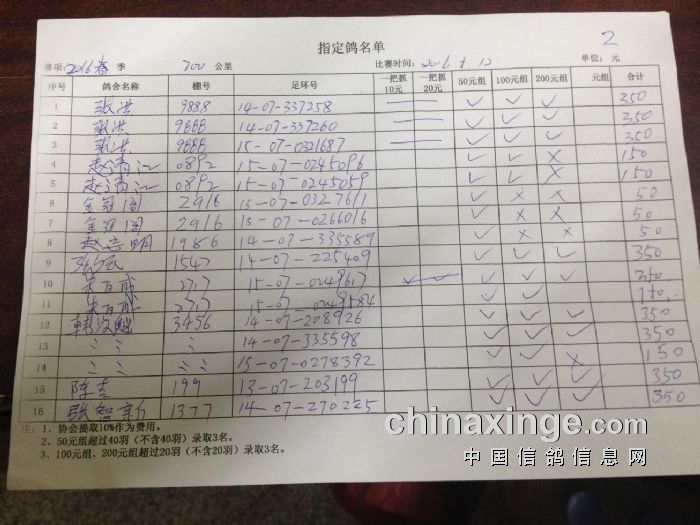 指定鸽名单
2
赛项: 2016春 季 700 公里 比赛时间: 2016 单位: 元
序号 鸽舍名称 棚号 足环号 一把抓10元 一把抓20元 50元组 100元组 200元组 元组 合计
1 张洪 9888 14-07-337258 ✓ ✓ ✓ 350
2 张洪 9888 14-07-337260 ✓ ✓ ✓ 350
3 张洪 9888 15-07-0321687 ✓ ✓ ✓ 350
4 赵清江 0892 15-07-0245096 ✓ ✓ × 150
5 赵清江 0892 15-07-0245059 ✓ ✓ × 150
6 金冠阁 2916 15-07-0327611 ✓ × × 50
7 金冠阁 2916 15-07-0266016 ✓ × × 50
8 赵志明 1986 14-07-335589 ✓ × × 50
9 1547 14-07-225409 ✓ ✓ ✓ 350
10 2717 15-07-0249617 ✓ ✓ ✓ ✓ ✓
11 2717 15-07-0249584 ✓ ✓ 150
12 3456 14-07-208926 ✓ ✓ ✓ 350
13 〃 〃 14-07-335598 ✓ ✓ ✓ 350
14 〃 〃 15-07-0278392 ✓ ✓ × 150
15 199 13-07-203199 ✓ ✓ ✓ 350
16 张智新 1377 14-07-270225 ✓ ✓ ✓ 350
注: 1、协会提取10%作为费用。
2、50元组超过40羽(不含40羽)录取3名。
3、100元组、200元组超过20羽(不含20羽)录取3名。
chinaxinge.com
中国信鸽信息网